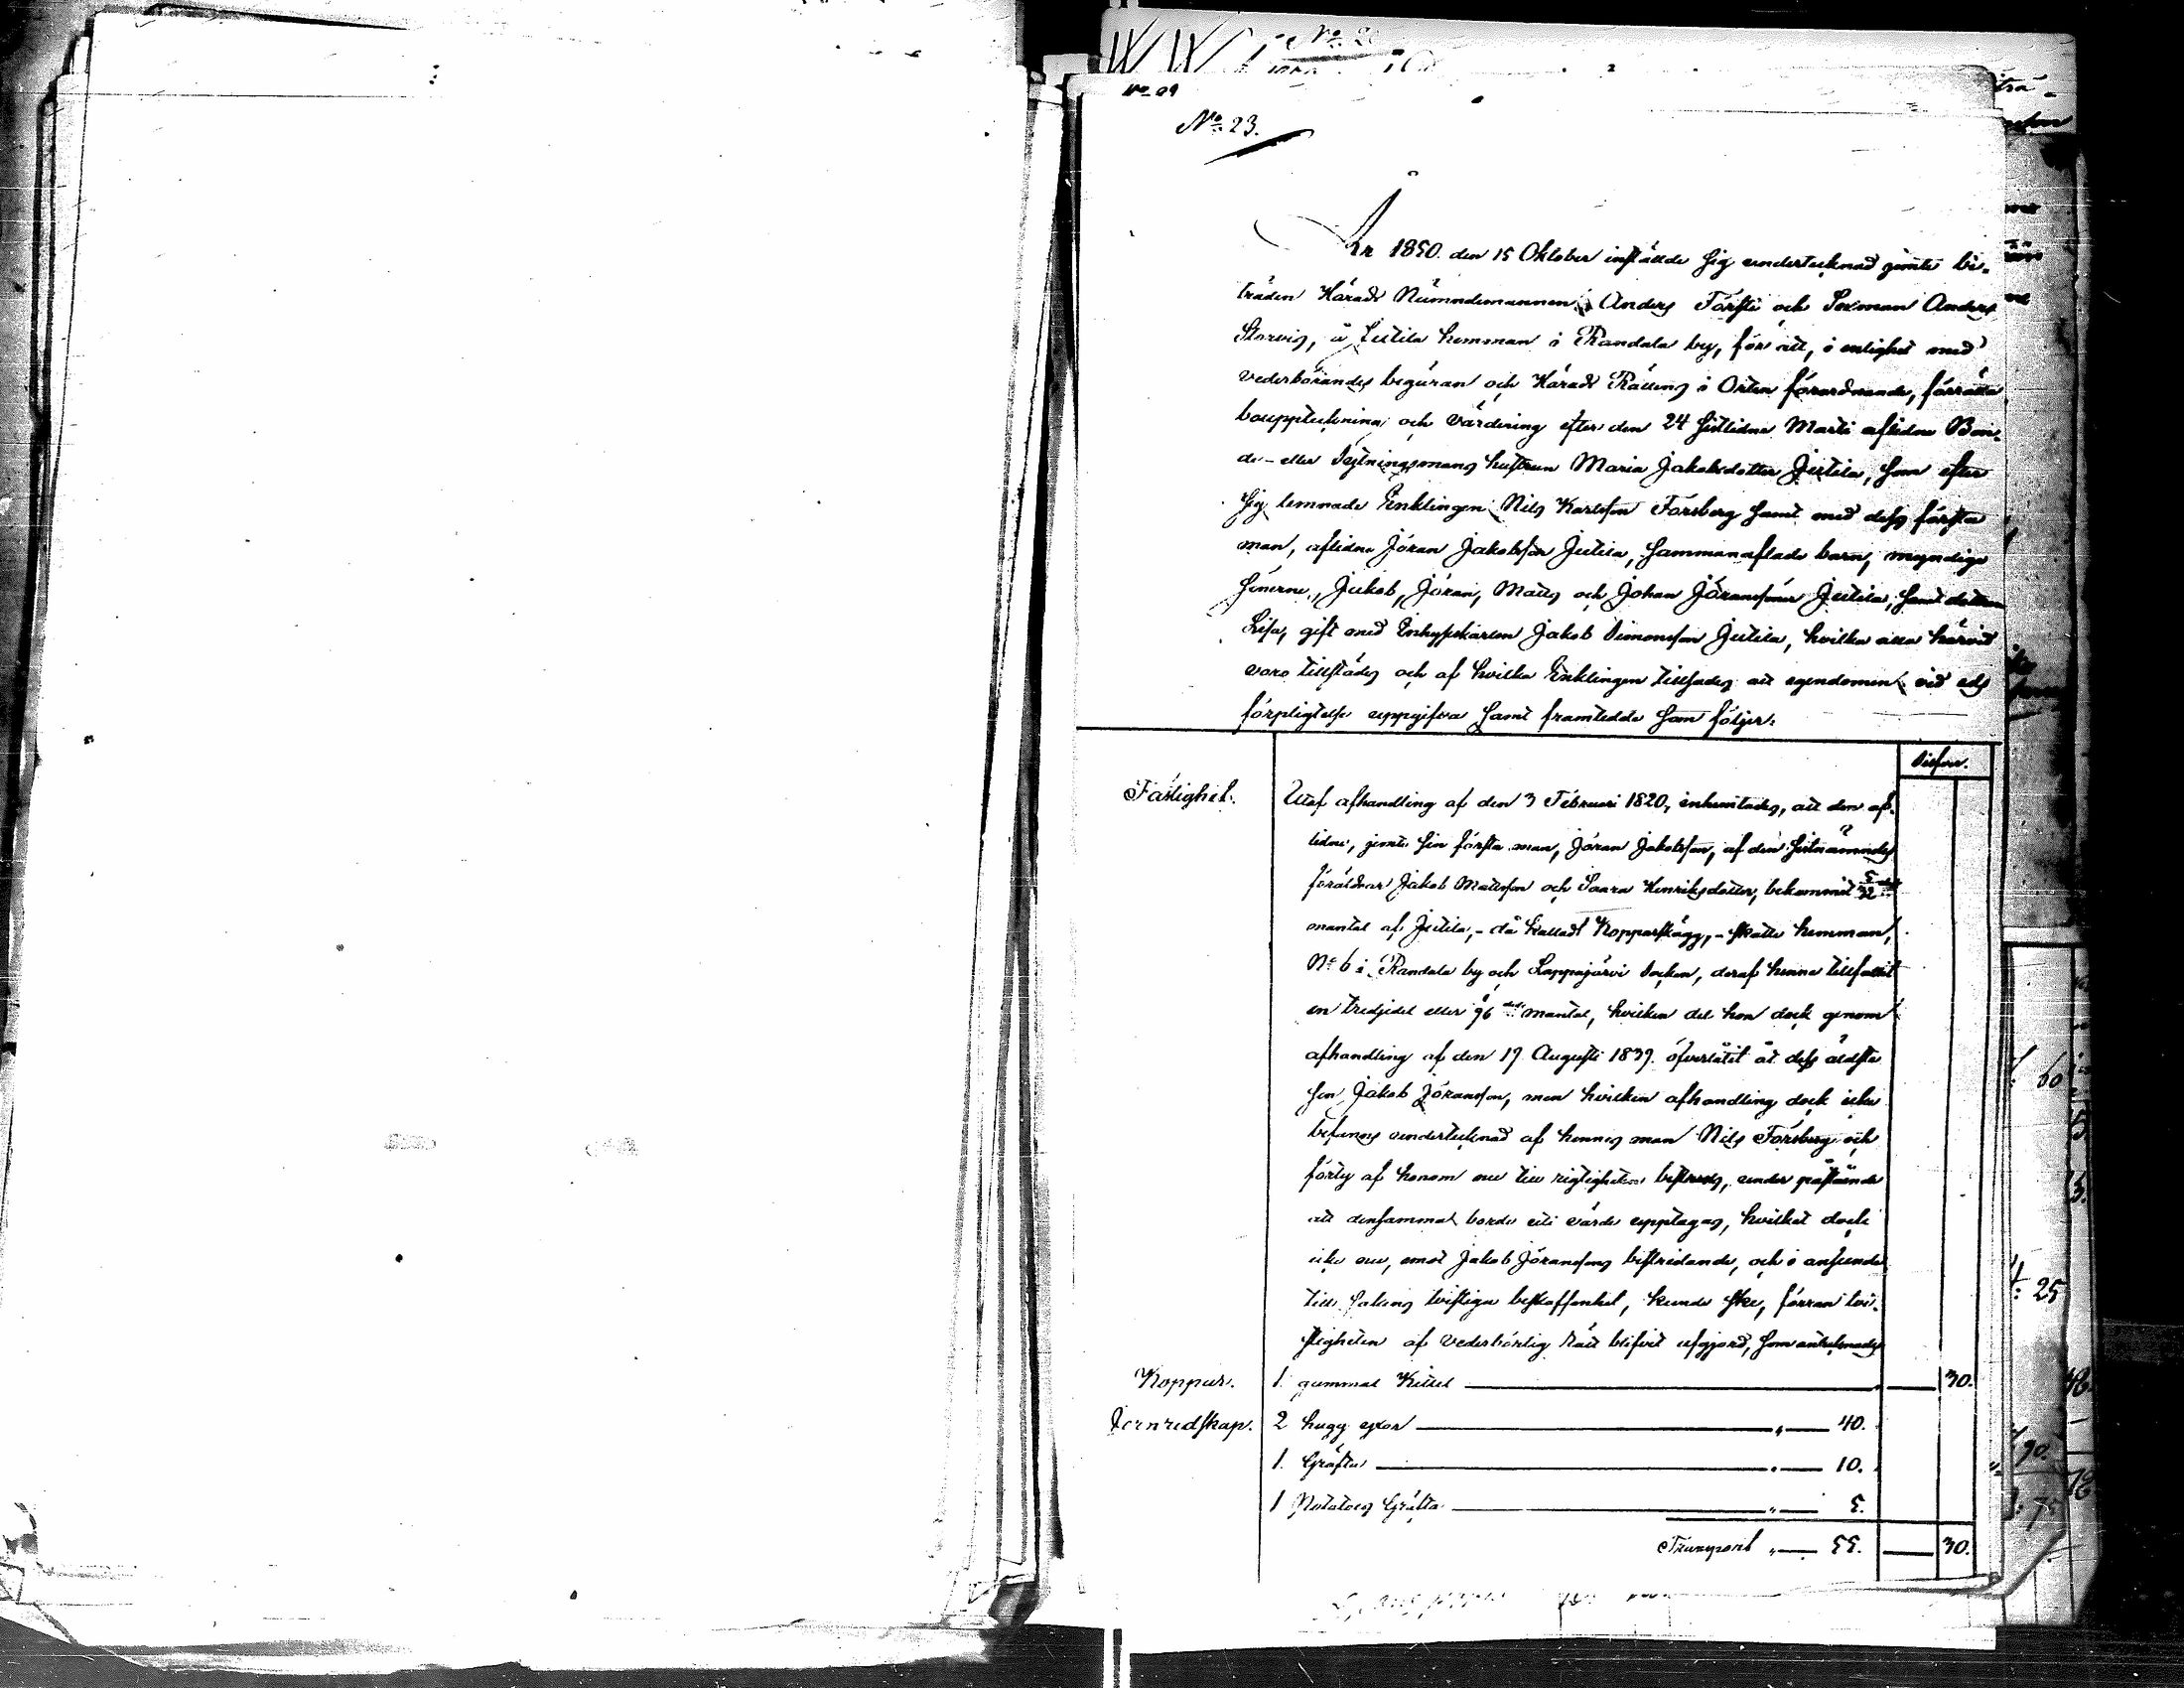 No 23.
År 1850. den 15 Oktober instälde sig undertecknad jemte bi-
träden Härads Nämndemannen Anders Försti och Sexman Anders
Storvis, å Jutila hemman i Randala by, för att, i enlighet med
vederbörandes begäran och Härads Rättens i Orten förordnande, förrätta
bouppteckning och värdering efter den 24 sistlidne Martii aflidne Bon-
de- eller Sytningsmans hustrun Maria Jakobsdotter Jutila, som efter
sig lemnade Enklingen Nils Karlsson Forsberg samt med dess första
man, aflidne Jöran Jakobsson Jutila, sammanaflade barn, myndige
sönerne, Jakob, Jöran, Matts och Johan Göranssöner Jutila, samt dottren
Lisa, gift med Inhyseskarlen Jakob Simonsson Jutila, hvilka alla härvid
voro tillstädes och af hvilka Enklingen tillsades att egendomen vid eds
förpligtelse uppgifva samt framtedde som följer:
Silfver.
Fastighet. Utaf afhandling af den 3 Februari 1820, inhemtades, att den af-
lidne, jemte sin första man, Jöran Jakobsson, af den sistnämndes
föräldrar Jakob Mattsson och Saara Henriksdotter, bekommit 5/32 dels
mantal af Jutila, - då kalladt Kopparskägg, - skatte hemman,
No 6 i Randala by och Lappajärvi Socken, deraf henne tillfallit
en tredjedel eller 5/96 dels mantal, hvilken del hon dock genom
afhandling af den 17 Augusti 1839. öfverlåtit åt dess äldste
son Jakob Jöransson, men hvilken afhandling dock icke
befanns undertecknad af hennes man Nils Forsberg och
förty af honom nu till rigtigheten bestreds, under påstående
att densamma borde till värde upptagas, hvilket dock
icke nu, emot Jakob Jöranssons bestridande, och i anseende
till sakens tvistiga beskaffenhet, kunde ske, förran tvi-
stigheten af vederbörlig Rätt blifvit afgjord, som antecknades
Koppar. 1. gammal Kittel 30.
Jernredskap. 2 hugg yxor " 40.
1. Gräfta " 10.
1 Gräfta " 5.
Transport " 55. 30.